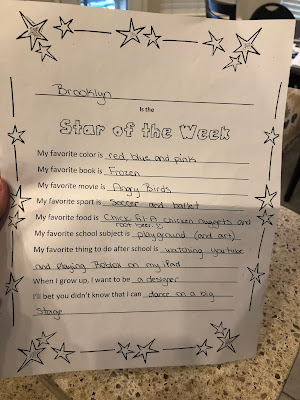 Brooklyn
Is the
Star of the Week
My favorite color is red, blue and pink
My favorite book is Frozen
My favorite movie is Angry Birds
My favorite sport is Soccer and ballet
My favorite food is Chick fil A chicken nuggets and
root beer. :)
My favorite school subject is playground (and art)
My favorite thing to do after school is watching youtube
and playing Roblox on my iPad
When I grow up, I want to be a designer
I'll bet you didn't know that I can dance on a big
Stage